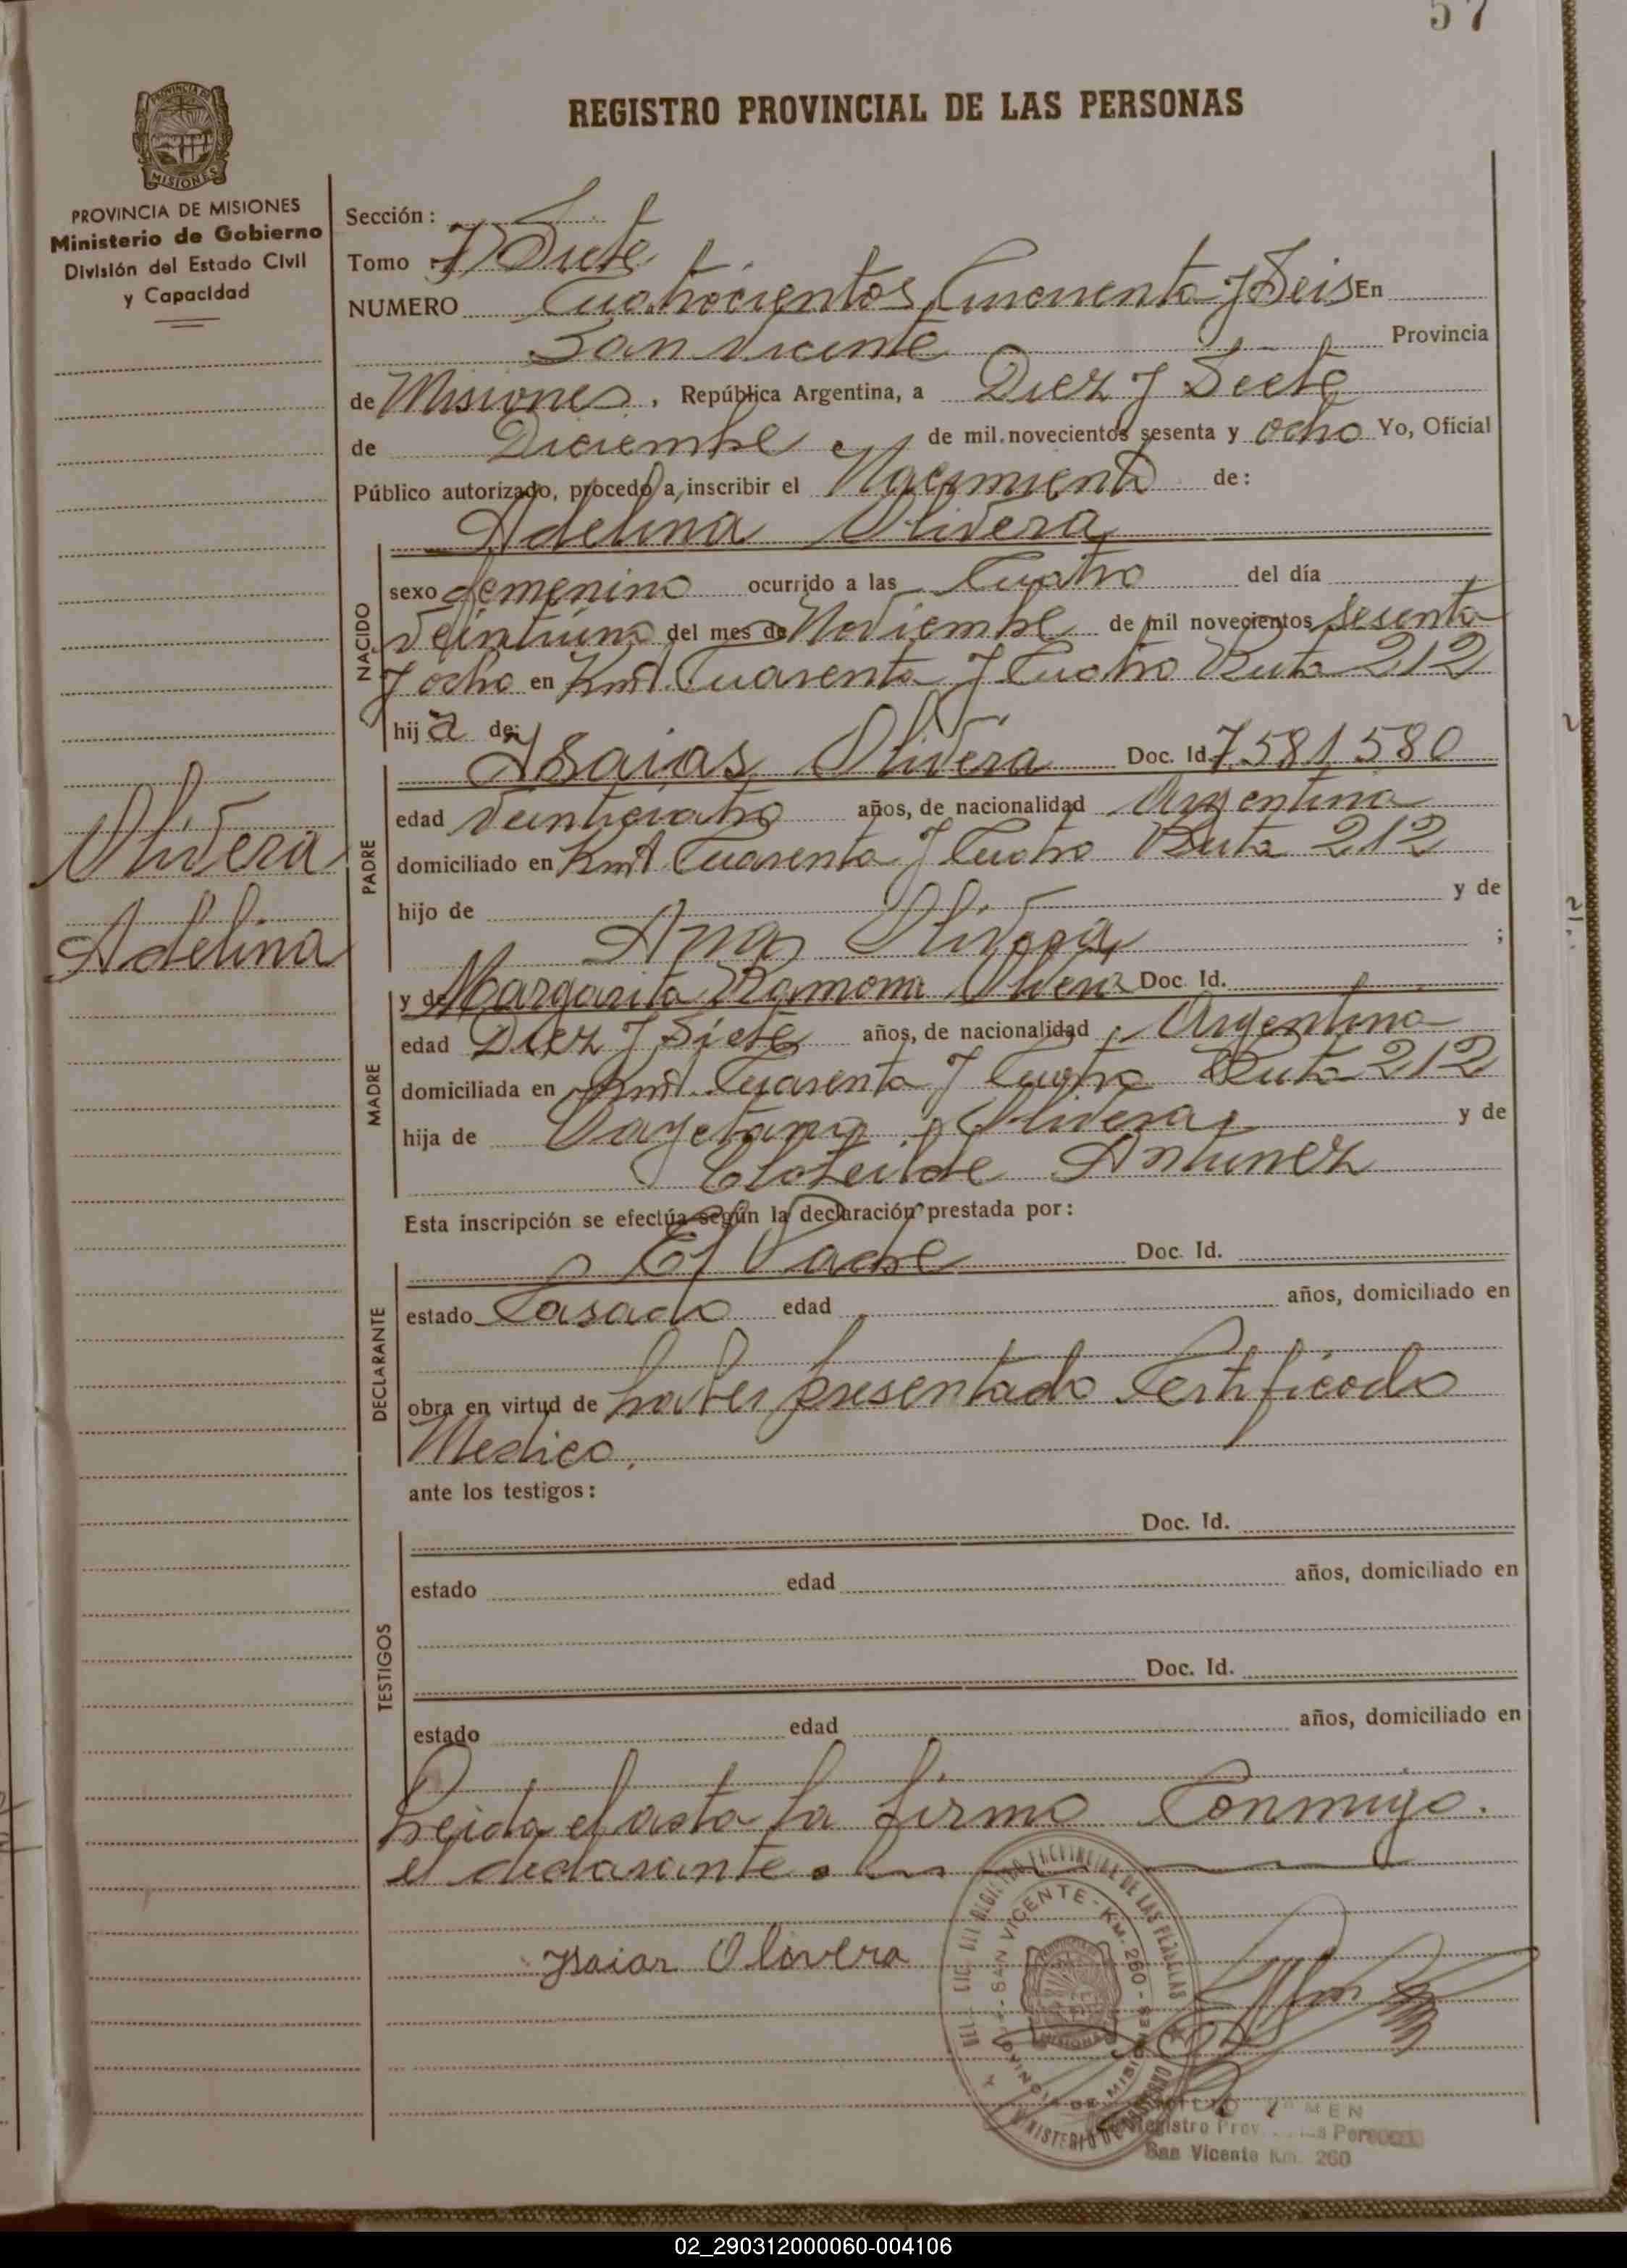 57
REGISTRO PROVINCIAL DE LAS PERSONAS
PROVINCIA DE MISIONES
MISIONES
PROVINCIA DE MISIONES
Ministerio de Gobierno
División del Estado Civil
y Capacidad
Olivera
Adelina
Sección:
Tomo Siete
NUMERO Cuatrocientos Cincuenta y Seis En
San Vicente Provincia
de Misiones, República Argentina, a Diez y Siete
de Diciembre de mil novecientos sesenta y ocho Yo, Oficial
Público autorizado, procedo a inscribir el Nacimiento de:
Adelina Olivera
NACIDO
sexo femenino ocurrido a las Cuatro del día
Veintiuno del mes de Noviembre de mil novecientos sesenta
y ocho en Kmt. Cuarenta y Cuatro Ruta 212
hija de:
Isaias Olivera Doc. Id. 7.581.580
PADRE
edad Veinticuatro años, de nacionalidad Argentina
domiciliado en Kmt Cuarenta y Cuatro Ruta 212
hijo de y de
Ana Olivera ;
y de Margarita Ramona Olivera Doc. Id.
MADRE
edad Diez y Siete años, de nacionalidad Argentina
domiciliada en Kmt. Cuarenta y Cuatro Ruta 212
hija de Cayetano Olivera y de
Cloteilde Antunez
Esta inscripción se efectúa según la declaración prestada por:
El Padre Doc. Id.
DECLARANTE
estado Casado edad años, domiciliado en
obra en virtud de haber presentado Certificado
Medico.
ante los testigos:
Doc. Id.
TESTIGOS
estado edad años, domiciliado en
Doc. Id.
estado edad años, domiciliado en
Leida el acta la firma Conmigo.
el declarante.
Isaias Olivera
SAN VICENTE - KM. 260
PROVINCIA DE MISIONES
MINISTERIO DE GOBIERNO
Registro Prov. Personas
San Vicente Km. 260
02_290312000060-004106